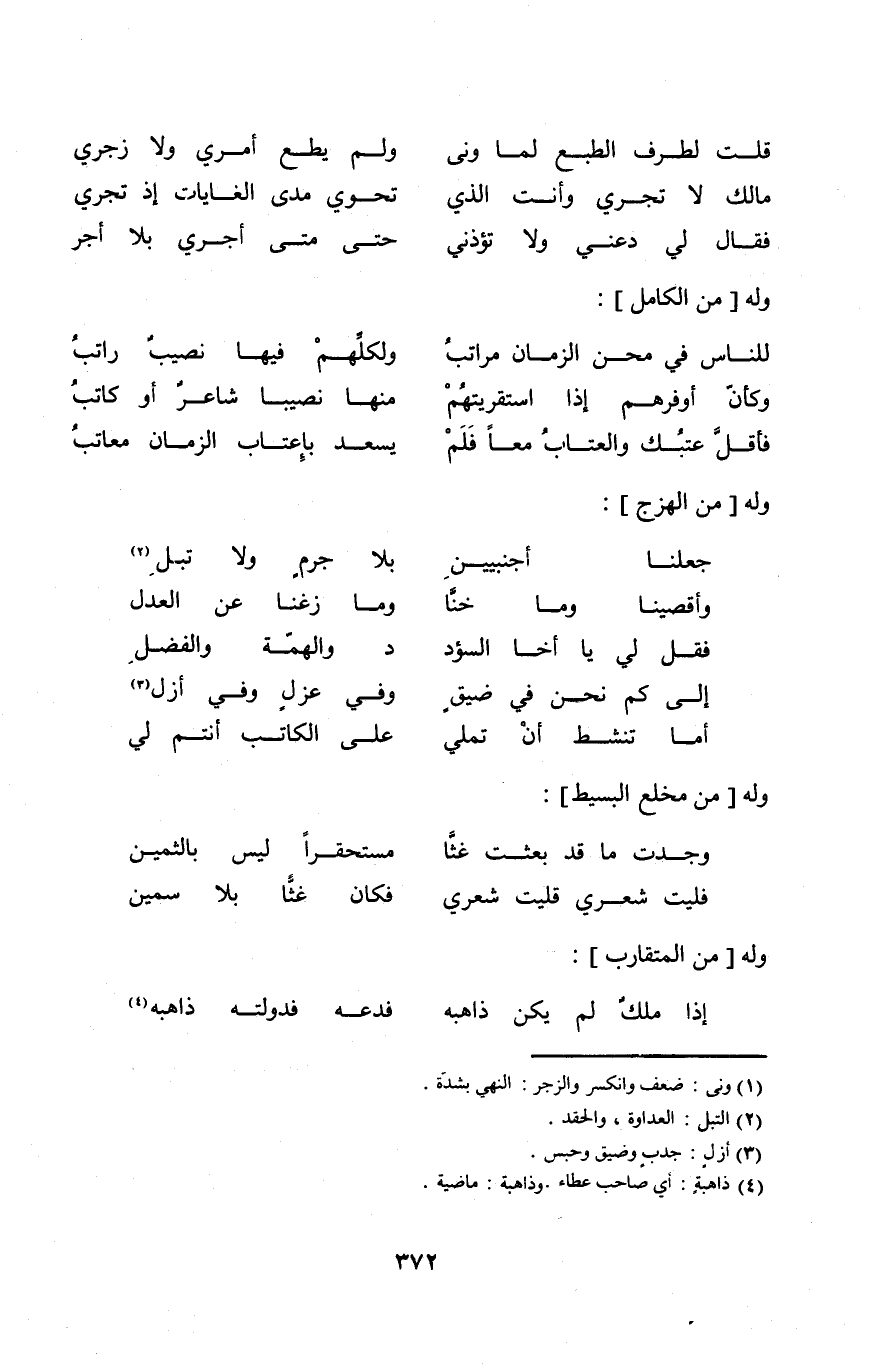 قلت لطرف الطبع لما ونى ولم يطع أمري ولا زجري
مالك لا تجري وأنت الذي تحوي مدى الغايات إذ تجري
فقال لي دعني ولا تؤذني حتى متى أجري بلا أجر
وله [ من الكامل ] :
للناس في محن الزمان مراتبُ ولكلِّهمْ فيها نصيبٌ راتبُ
وكأنّ أوفرهم إذا استقريتهُمْ منها نصيبا شاعرٌ أو كاتبُ
فأقلَّ عتبُك والعتابُ معاً فَلَمْ يسعد بإعتاب الزمان معاتبُ
وله [ من الهزج ] :
جعلنا أجنبيينِ بلا جرمٍ ولا تبلِ(٢)
وأقصينا وما خنَّا وما زغنا عن العدل
فقل لي يا أخا السؤد د والهمّة والفضلِ
إلى كم نحن في ضيقٍ وفي عزلٍ وفي أزل(٣)
أما تنشط أنْ تملي على الكاتب أنتم لي
وله [ من مخلع البسيط] :
وجدت ما قد بعثت غثَّا مستحقراً ليس بالثمين
فليت شعري قليت شعري فكان غثَّا بلا سمين
وله [ من المتقارب ] :
إذا ملكٌ لم يكن ذاهبه فدعه فدولته ذاهبه(٤)
(١) ونى : ضعف وانكسر والزجر : النهي بشدّة .
(٢) التبل : العداوة ، والحقد .
(٣) أزلٍ : جدبٍ وضيق وحبس .
(٤) ذاهبةٍ : أي صاحب عطاء .وذاهبة : ماضية .
٣٧٢